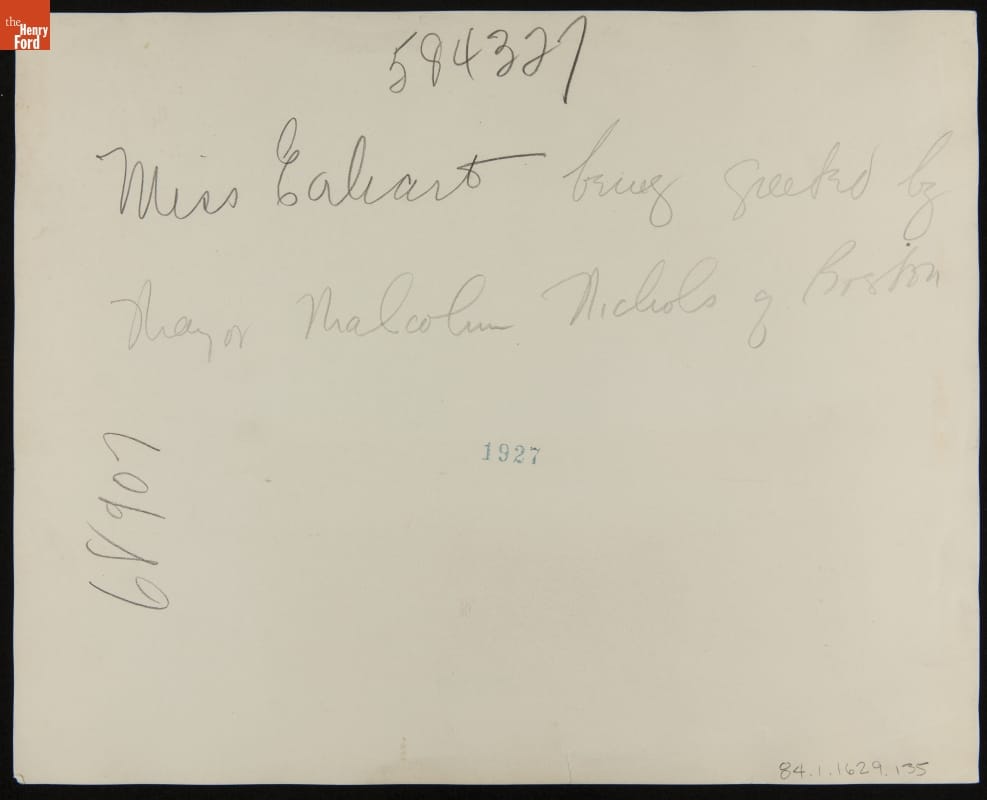 the
Henry
Ford
584327
Miss Earhart being greeted by
Mayor Malcolm Nichols of Boston
1927
68907
84.1.1629.135